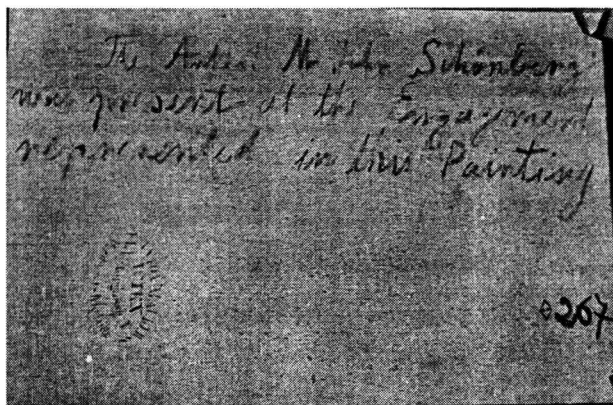 The Artist Mr John Schönberg
was present at the Engagement
represented in this Painting
267